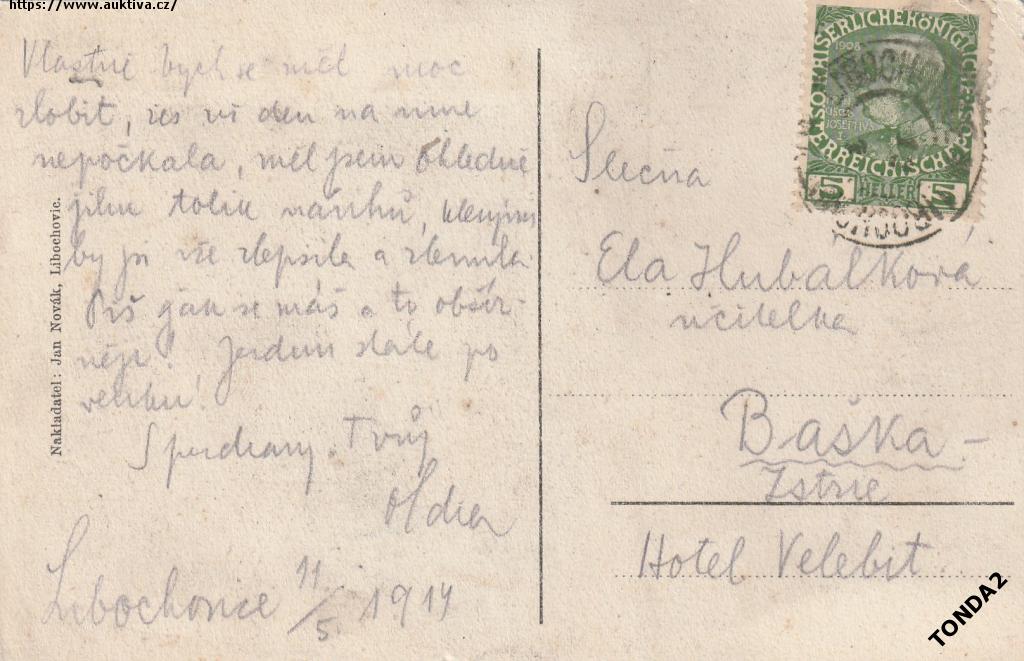 https://www.auktiva.cz/
Vlastně bych se měl moc
zlobit, žes ví den na mne
nepočkala, měl jsem ohledně
tolik návrhů,
by ji vše zlepšila a
Piš jak se máš a to obšír-
něji! Jezdím stále po
venku!
S Tvůj
Olda
Libochovice 11/5 1914
Nakladatel: Jan Novák, Libochovic.
KAISERLICHE KÖNIGLICHE ÖSTERREICHISCHE POST
1908
5 HELLER 5
Slečna
Ela Hubálková
učitelka
Baška -
Istrie
Hotel Velebit
TONDA2